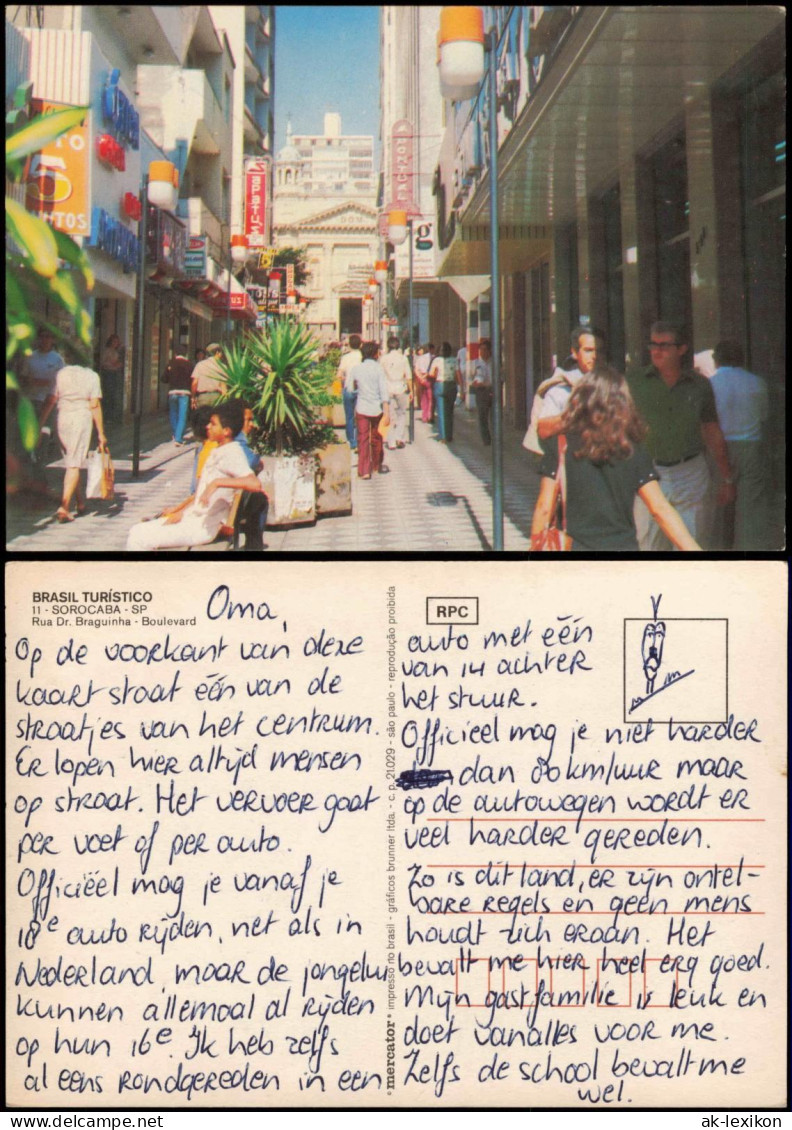 5
g
BRASIL TURÍSTICO
11 - SOROCABA - SP
Rua Dr. Braguinha - Boulevard
Oma,
Op de voorkant van deze
kaart staat één van de
straatjes van het centrum.
Er lopen hier altijd mensen
op straat. Het vervoer gaat
per voet of per auto.
Officiëel mag je vanaf je
18e autorijden, net als in
Nederland, maar de jongelui
kunnen allemaal al rijden
op hun 16e. Ik heb zelfs
al eens rondgereden in een
mercator® impresso no brasil - gráficos brunner ltda. - c. p. 21.029 - são paulo - reprodução proibida
RPC
auto met één
van 14 achter
het stuur.
Officieel mag je niet harder
dan 80 km/uur maar
op de autowegen wordt er
veel harder gereden.
Zo is dit land, er zijn ontel-
bare regels en geen mens
houdt zich eraan. Het
bevalt me hier heel erg goed.
Mijn gastfamilie is leuk en
doet vanalles voor me.
Zelfs de school bevalt me
wel.
ak-lexikon